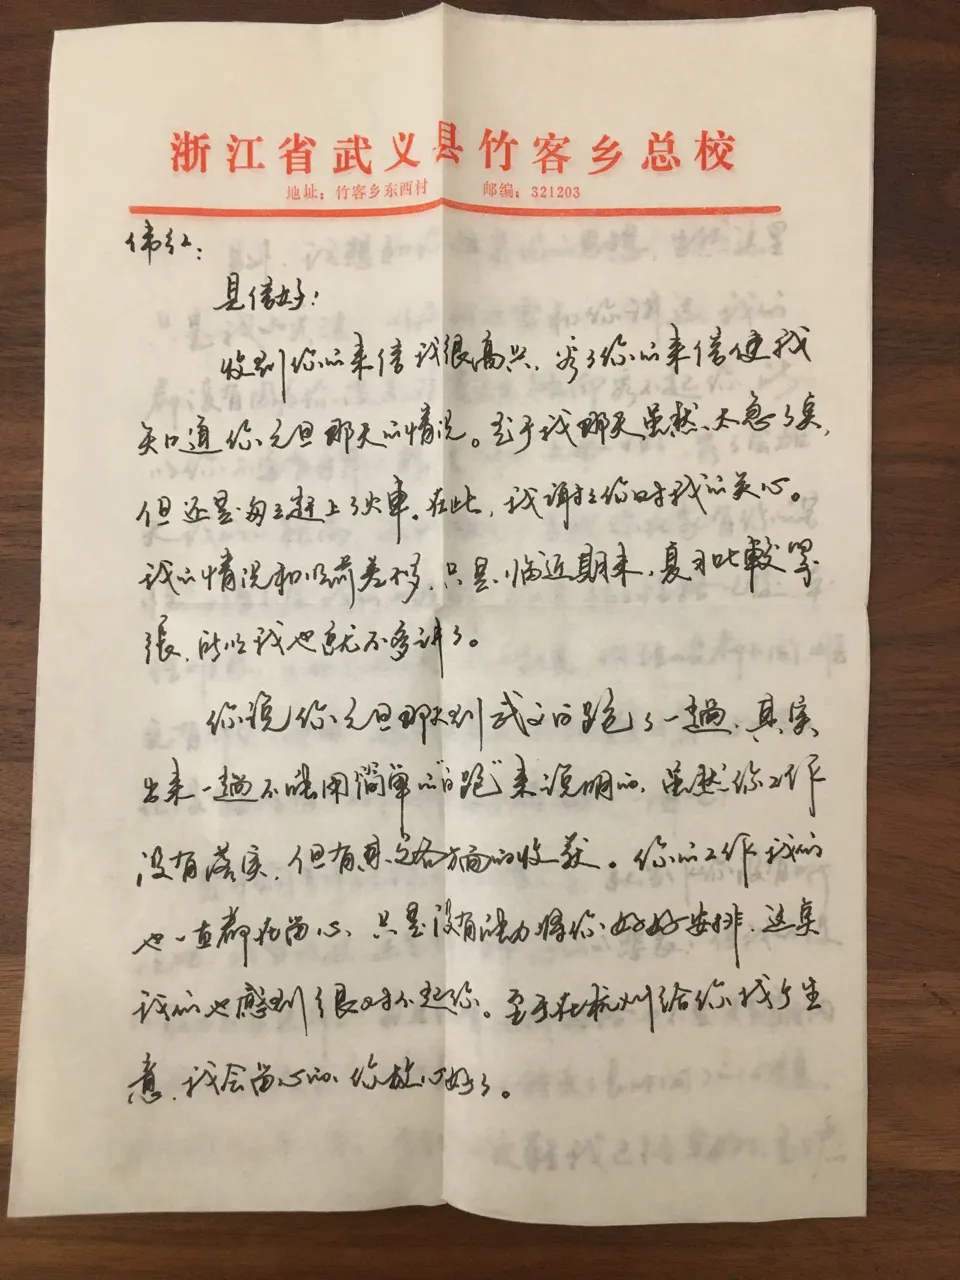 浙江省武义县竹客乡总校
地址：竹客乡东西村 邮编：321203
伟红：
见信好！
收到你的来信我很高兴，看了你的来信使我
知道你元旦那天的情况。至于我那天虽然太急了矣，
但还是匆匆赶上了火车。在此，我谢谢你对我的关心。
我的情况和以前差不多，只是临近期末，复习比較紧
張，所以我也就不多讲了。
你说你元旦那天到武义白跑了一趟，其实
出来一趟不能用简单的“白跑”来说明的，虽然你工作
没有落实，但有其它各方面的收获。你的工作我们
也一直都在留心，只是没有能力将你好好安排，这矣
我们也感到很对不起你。至于在杭州给你找个生
意，我会留心的，你放心好了。